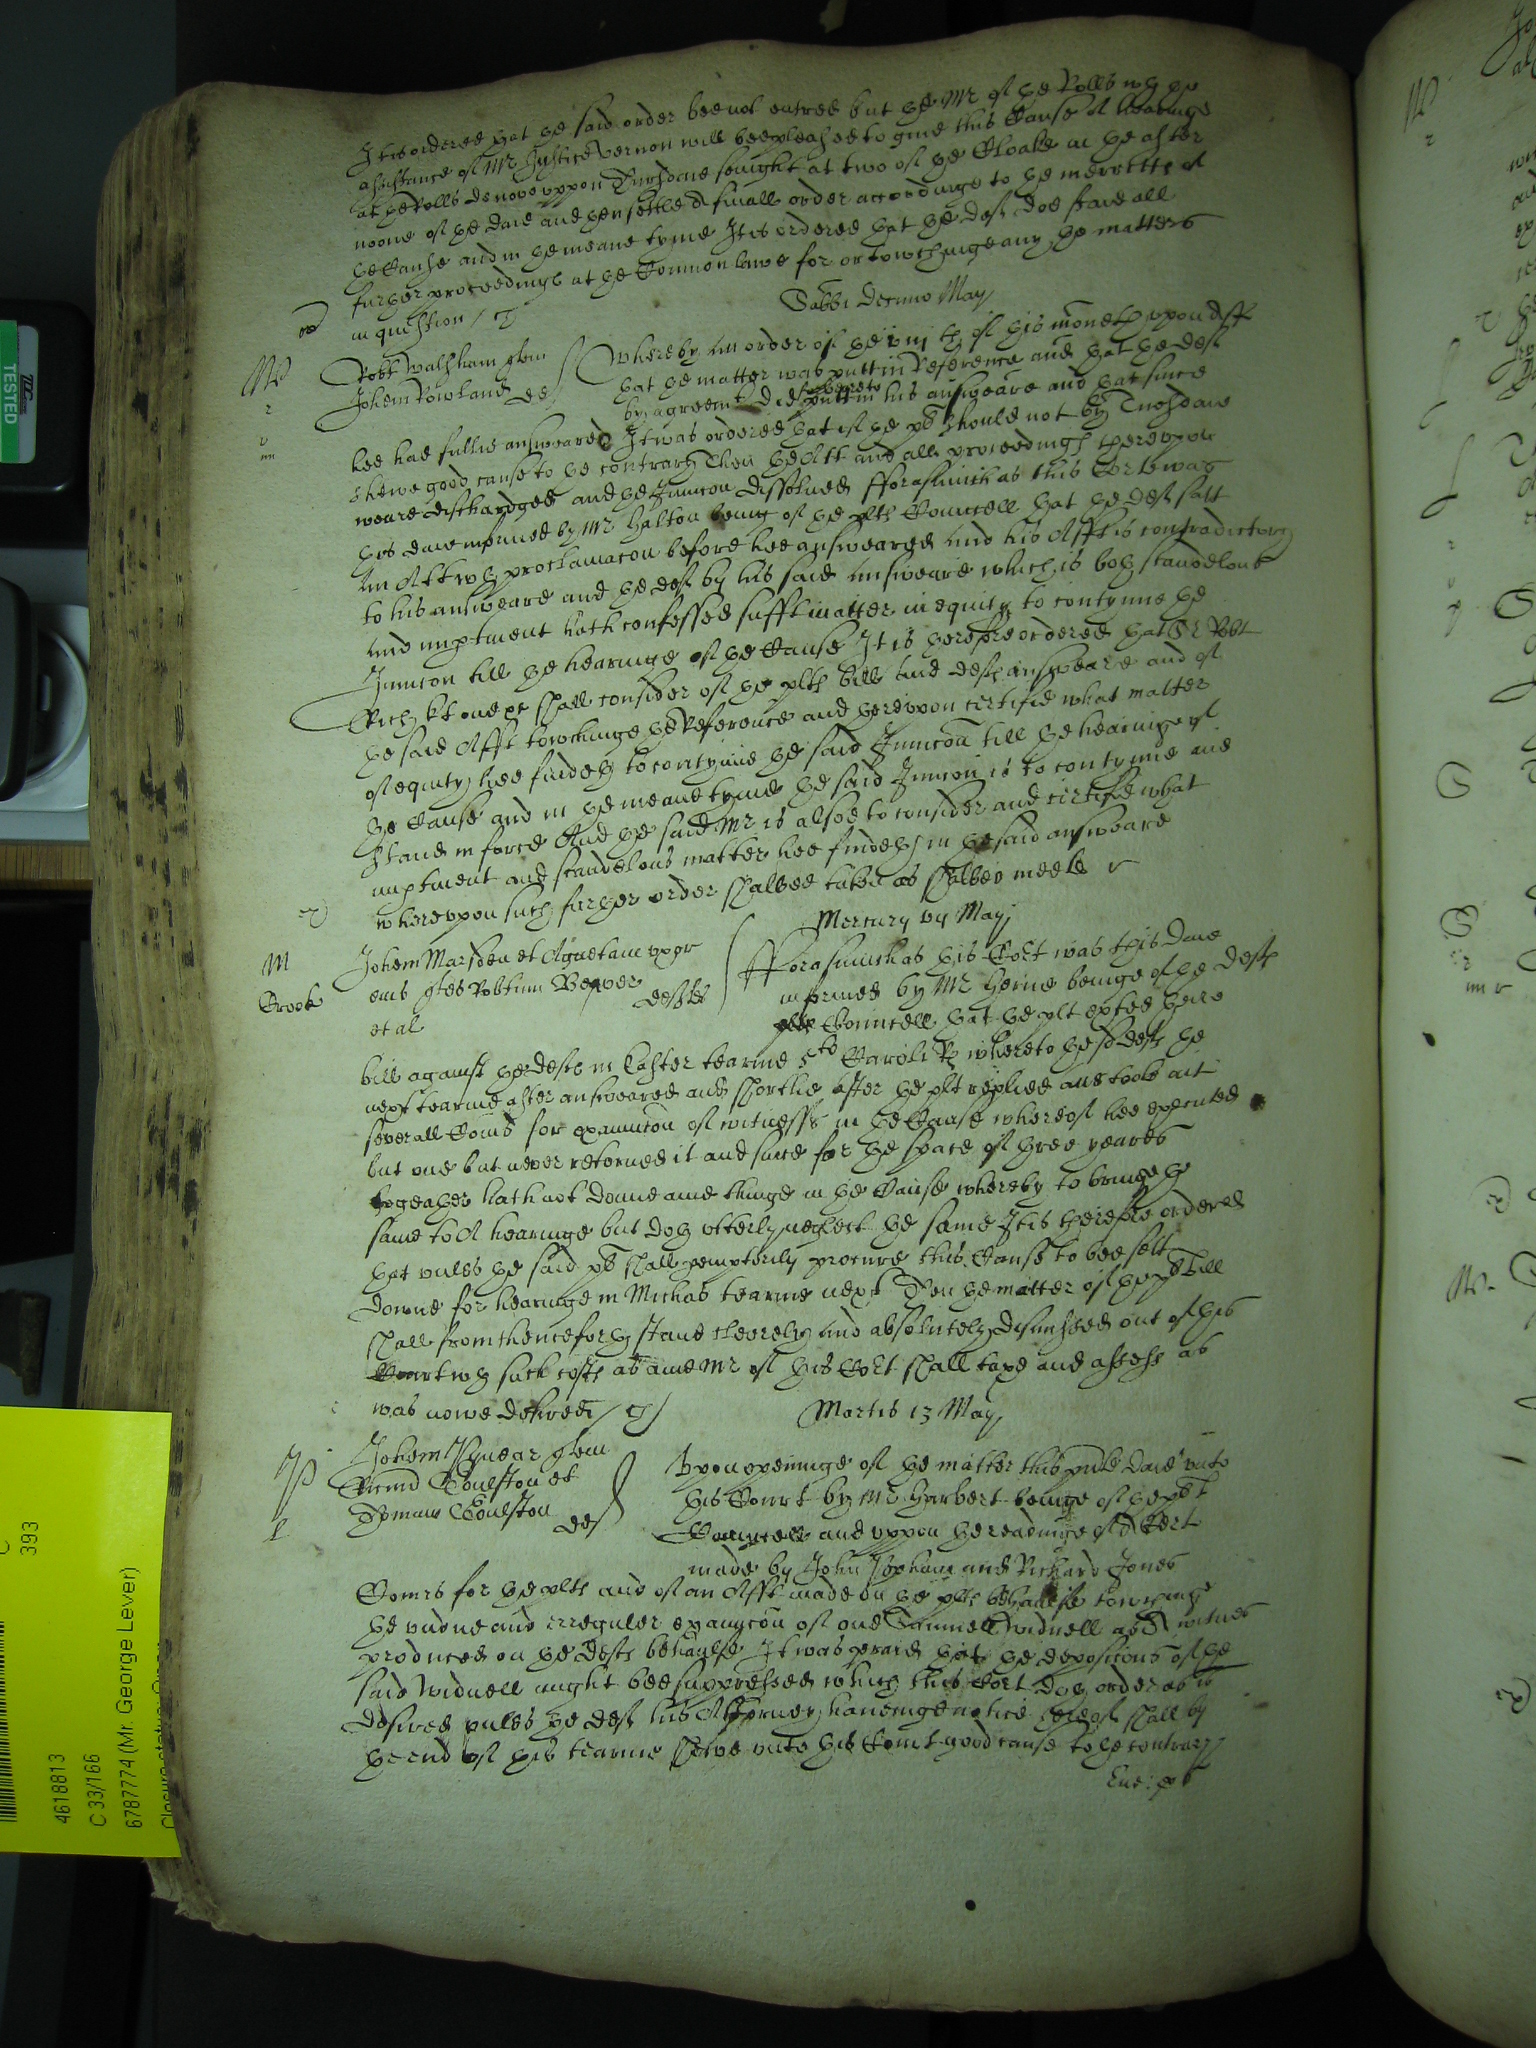 It is ordered that the said order bee not entred but the Mr of the Rolls wth the
assistance of Mr Justice Vernon will bee pleased to give this Cause A hearinge
at the Rolls de novo uppon Thursdaie senight at two of the Clocke in the after
noone of the daie and then settle A finall order accordinge to the merritts of
the Cause and in the meane tyme It is ordered that the deft doe staie all
further proceedings at the Common lawe for or towchinge any the matters
in question /
Sabbi decimo May
Robt Walsham quer
Johem Rowland def
Whereby an order of the viijth of this moneth upon Afft
that the matter was putt in Reference and that the deft
by agreemt did putt in his answeare and that since
hee had fullie answeared It was ordered that if the pl should not by Tuesdaie
shewe good cause to the contrary Then the Att and all proceedings thereupon
weare dischardged and the Iniuncon dissolved fforasmuch as this Cort was
this daie informed by Mr Halton being of the plts Councell that the deft satt
an Att wth proclamacon before hee answeared and his Afft is contradictory
to his answeare and the deft by his said answeare which is both scandelous
and imptinent hath confessed sufft matter in equity to contynue the
Iniuncon till the hearinge of the Cause It is therefore ordered that Sr Robt
Rich kt one &c shall consider of the plts bill and defts answeare and of
the said Afft towchinge the Reference and thereupon certifie what matter
of equity hee findeth to contynue the said Iniuncon till the hearinge of
the Cause and in the meane tyme the said Iniuncon is to contynue and
stand in force And the said Mr is alsoe to consider and certifie what
imptinent and scandelous matter hee findeth in the said answeare
whereupon such further order shalbee taken as shalbee meete
Mercury vij May
Johem Marsden et Agnetam uxor
eius quer Robtum Beaver
et al
defts
Crook
fforasmuch as this Cort was this daie
informed by Mr Herne beinge of the defts
Councell that the plt exhted there
bill against the defts in Easter tearme 5to Caroli R whereto the sd defts the
next tearme after answeared and shortlie after the plt replied and tooke out
severall Comis for examincon of witnesses in the Cause whereof hee executed
but one but never retorned it and since for the space of three yeares
togeather hath not donne anie thinge in the Cause whereby to bringe the
same to A hearinge but doth utterly neglect the same It is therefore ordered
that unles the said pl shall pemptorily procure this Cause to bee sett
downe for hearinge in Michas tearme next Then the matter of the pl bill
shall from thenceforth stand cleerely and absolutely dismissed out of this
Court wth such costs as anie Mr of this Cort shall taxe and assesse as
was nowe desired /
Martis 13 May
Johem quer
Ricmd Coulston et
Thomam Coulston
def
Upon openinge of the matter this pnte daie unto
this Court by Mr Harbert beinge of the pl
Councell and uppon the readinge of A Cert
made by John Popham and Richard Jones
Comrs for the plts and of an Afft made on the plts behaulfe towching
the undue and irreguler examincon of one Samuell Widnell as A witnes
produced on the defts behaulfe It was prayed that the depositions of the
said Widnell might bee suppressed which this Cort doth order as is
desired unles the deft his Attorney haveinge notice thereof shall by
the end of this tearme shewe unto this Court good cause to the contrary
TESTED
393
4618813
C 33/166
6787774 (Mr. George Lever)